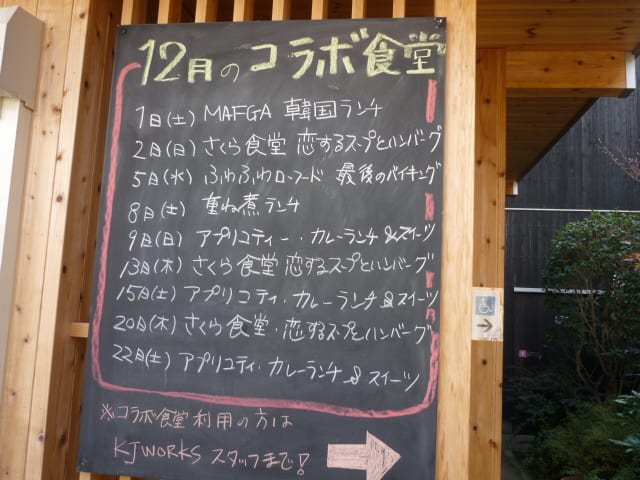 12月のコラボ食堂
1日(土) MAFGA 韓国ランチ
2日(日) さくら食堂 恋するスープとハンバーグ
5日(水) ふわふわローフード 最後のバイキング
8日(土) 重ね煮ランチ
9日(日) アプリコティー・カレーランチ&スイーツ
13日(木) さくら食堂 恋するスープとハンバーグ
15日(土) アプリコティ・カレーランチ&スイーツ
20日(木) さくら食堂・恋するスープとハンバーグ
22日(土) アプリコティ・カレーランチ&スイーツ
※コラボ食堂利用の方は
KJWORKS スタッフまで!